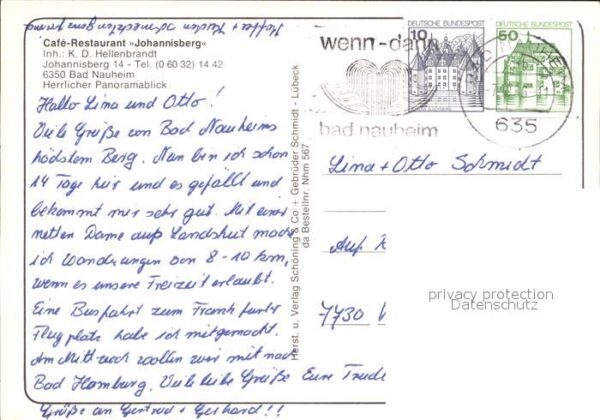 Café-Restaurant »Johannisberg«
Inh.: K. D. Hellenbrandt
Johannisberg 14 - Tel. (0 60 32) 14 42
6350 Bad Nauheim
Herrlicher Panoramablick
Hallo Lina und Otto!
Viele Grüße von Bad Nauheims
höchstem Berg. Nun bin ich schon
14 Tage hier und es gefällt und
bekommt mir sehr gut. Mit einer
netten Dame aus Landshut mache
ich Wanderungen von 8-10 km,
wenn es unsere Freizeit erlaubt.
Eine Busfahrt zum Frankfurter
Flugplatz habe ich mitgemacht.
Am Mittwoch wollen wir mit nach
Bad Homburg. Viele liebe Grüße Eure Trude
Grüße an Gertrud + Gerhard!!
Herst. u. Verlag Schöning & Co + Gebrüder Schmidt - Lübeck
da Bestellnr. Nhm 567
wenn-dann
bad nauheim
DEUTSCHE BUNDESPOST
10
DEUTSCHE BUNDESPOST
50
635
Lina + Otto Schmidt
Auf
7730
privacy protection
Datenschutz